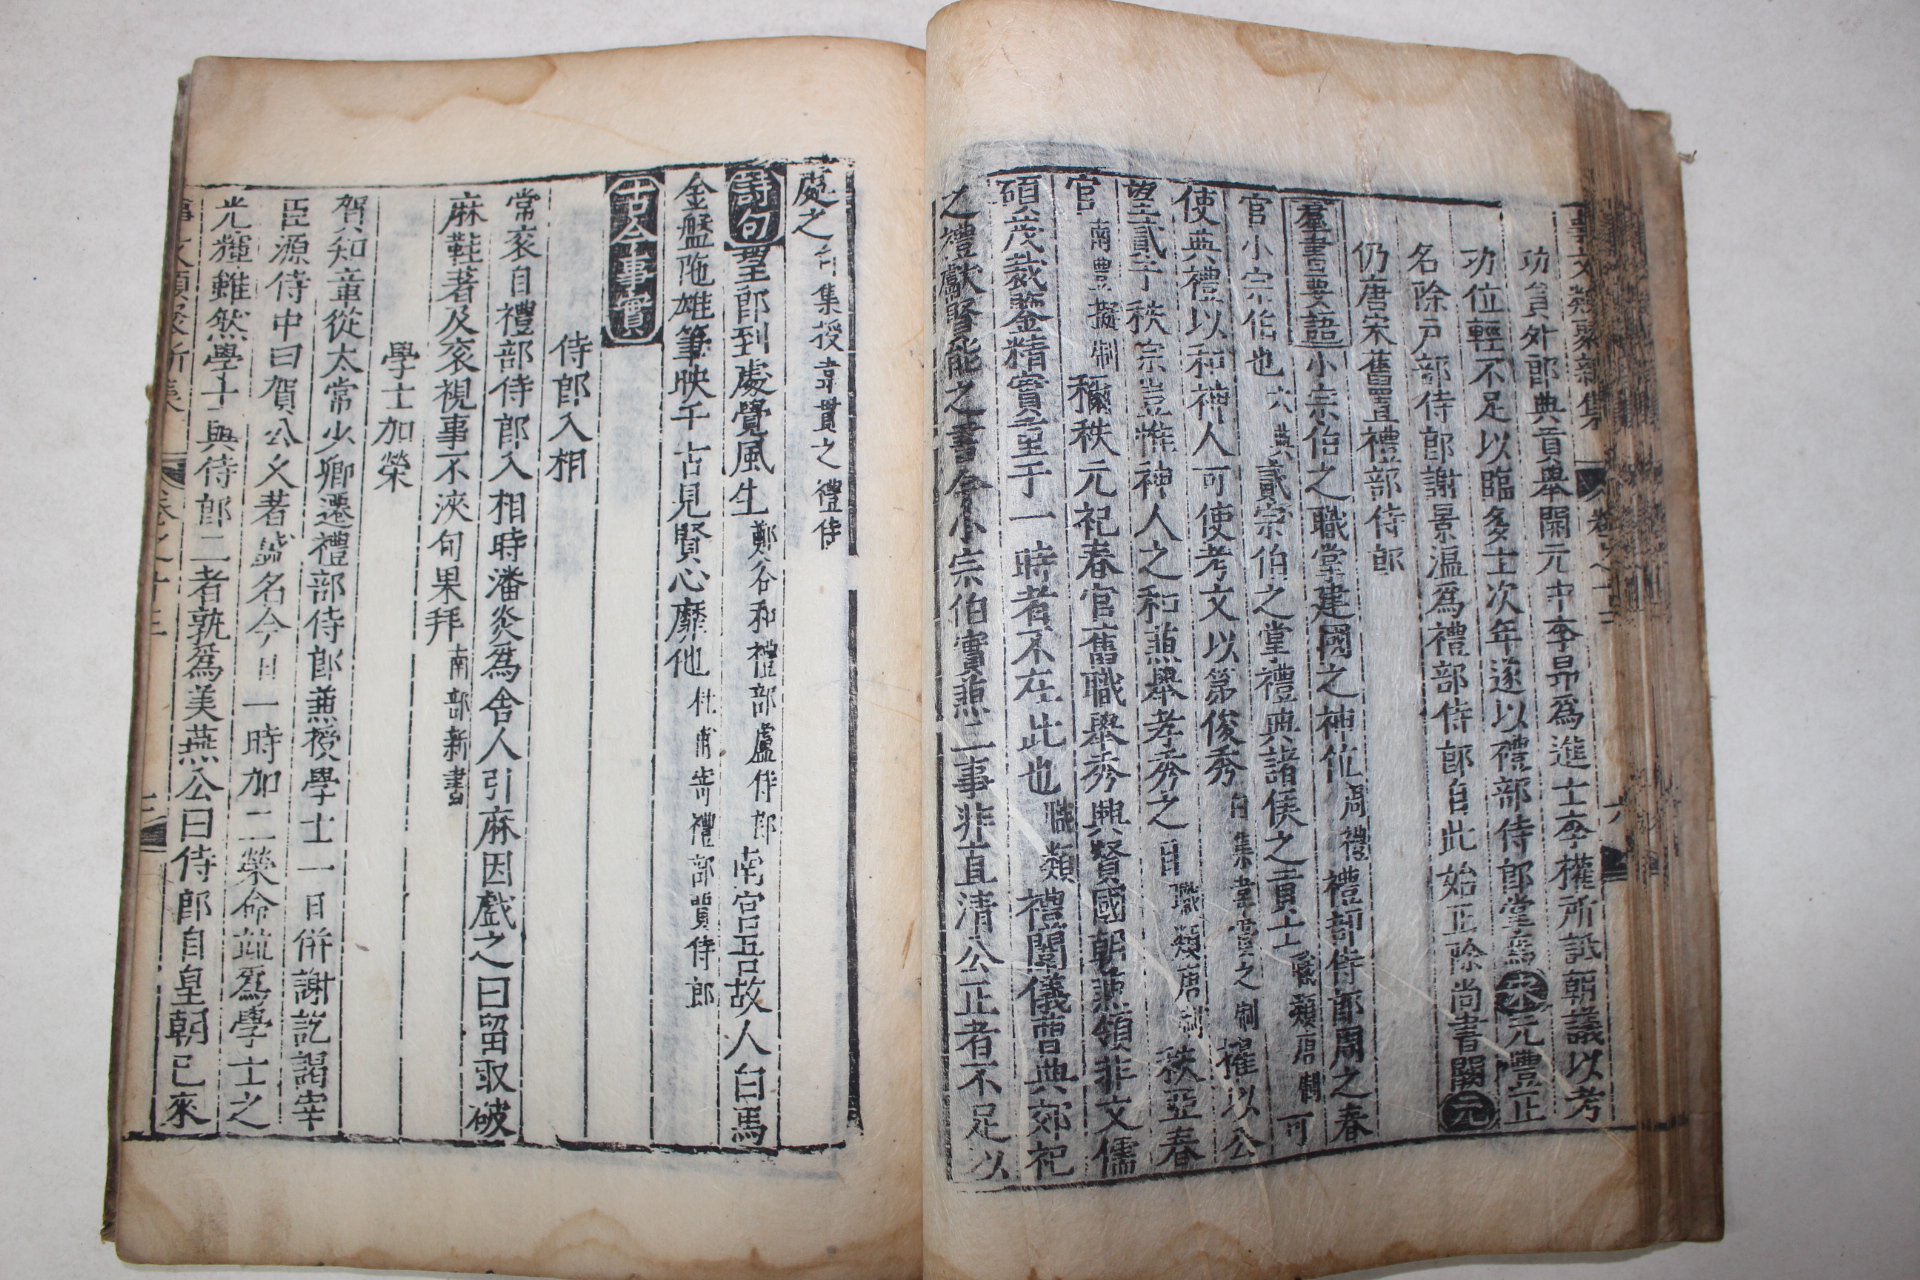 事文類聚新集 卷之十三 六
功員外郎典貢舉開元中李昂為進士李權所詆朝議以考
功位輕不足以臨多士次年遂以禮部侍郎掌焉宋元豐正
名除戶部侍郎謝景溫為禮部侍郎自此始正除尚書闕元
仍唐宋舊置禮部侍郎
羣書要語小宗伯之職掌建國之神位周禮禮部侍郎周之春
官小宗伯也六典貳宗伯之掌禮典諸侯之貢士職類唐制可
使典禮以和神人可使考文以第俊秀白集韋雲之制擢以公
望貳于秩宗豈惟神人之和兼舉孝秀之目職類唐制秩亞春
官南豊擬制穪秩元祀春官舊職舉秀興賢國朝兼領非文儒
碩茂裁鑒金精實童于一時者不在此也職類禮闈儀曹典郊祀
之禮獻賢能之書今小宗伯實兼二事非直清公正者不足以
處之白集授韋貫之禮侍
詩句聖郎到處覺風生鄭谷和禮部盧侍郎南宮吾故人白馬
金盤陁雄筆映千古見賢心靡他杜甫寄禮部賈侍郎
古今事實
侍郎入相
常衮自禮部侍郎入相時潘炎為舍人引麻因戲之曰留取破
麻鞋著及衮視事不浹旬果拜南部新書
學士加榮
賀知章從太常少卿遷禮部侍郎兼授學士一日併謝訖謁宰
臣源侍中曰賀公久著盛名今日一時加二榮命並為學士之
光輝雖然學士與侍郎二者孰為美燕公曰侍郎自皇朝已來
事文類聚新集 卷之十三